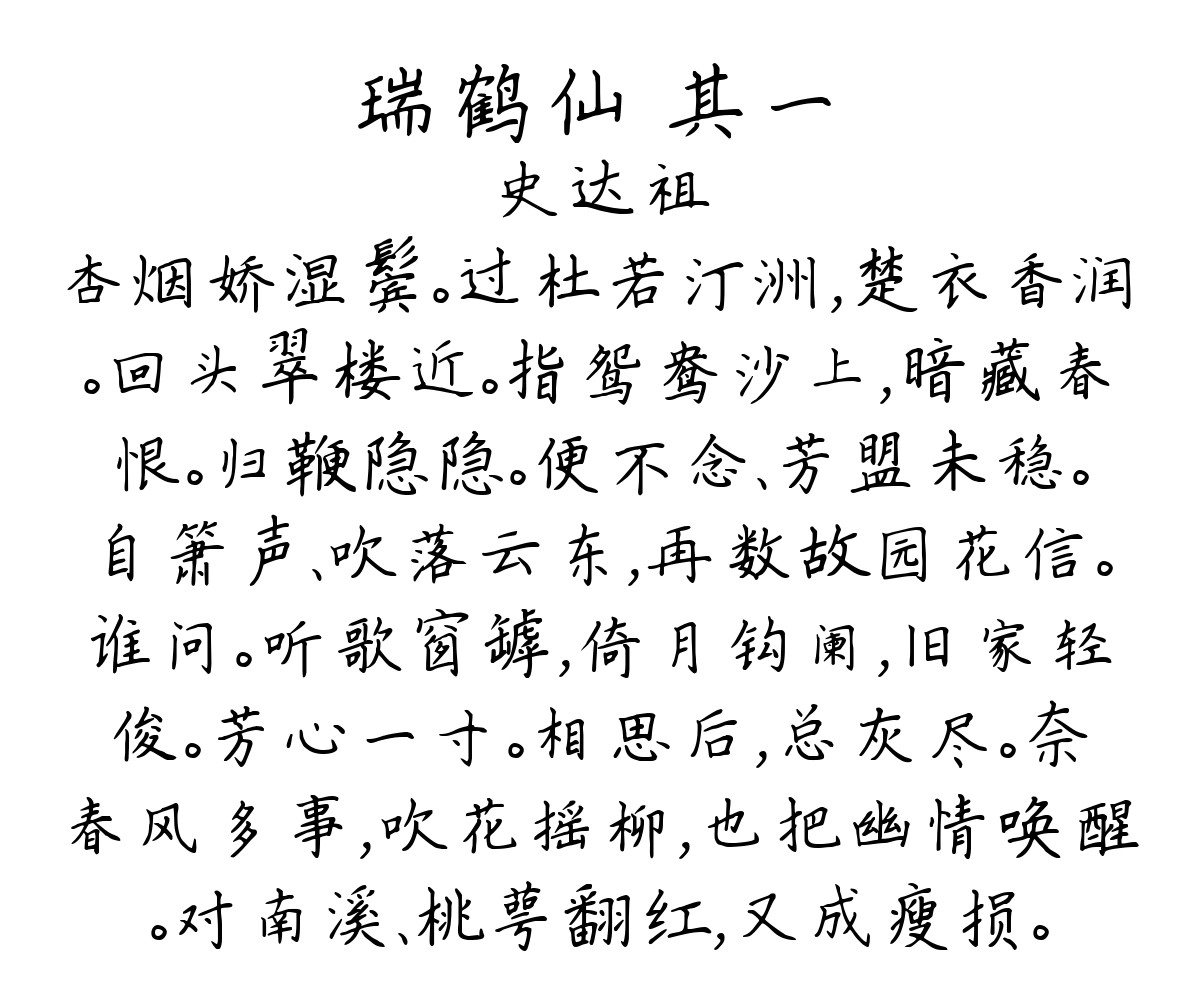 瑞鹤仙 其一
史达祖
杏烟娇湿鬓。过杜若汀洲,楚衣香润
。回头翠楼近。指鸳鸯沙上,暗藏春
恨。归鞭隐隐。便不念、芳盟未稳。
自箫声、吹落云东,再数故园花信。
谁问。听歌窗罅,倚月钩阑,旧家轻
俊。芳心一寸。相思后,总灰尽。奈
春风多事,吹花摇柳,也把幽情唤醒
。对南溪、桃萼翻红,又成瘦损。